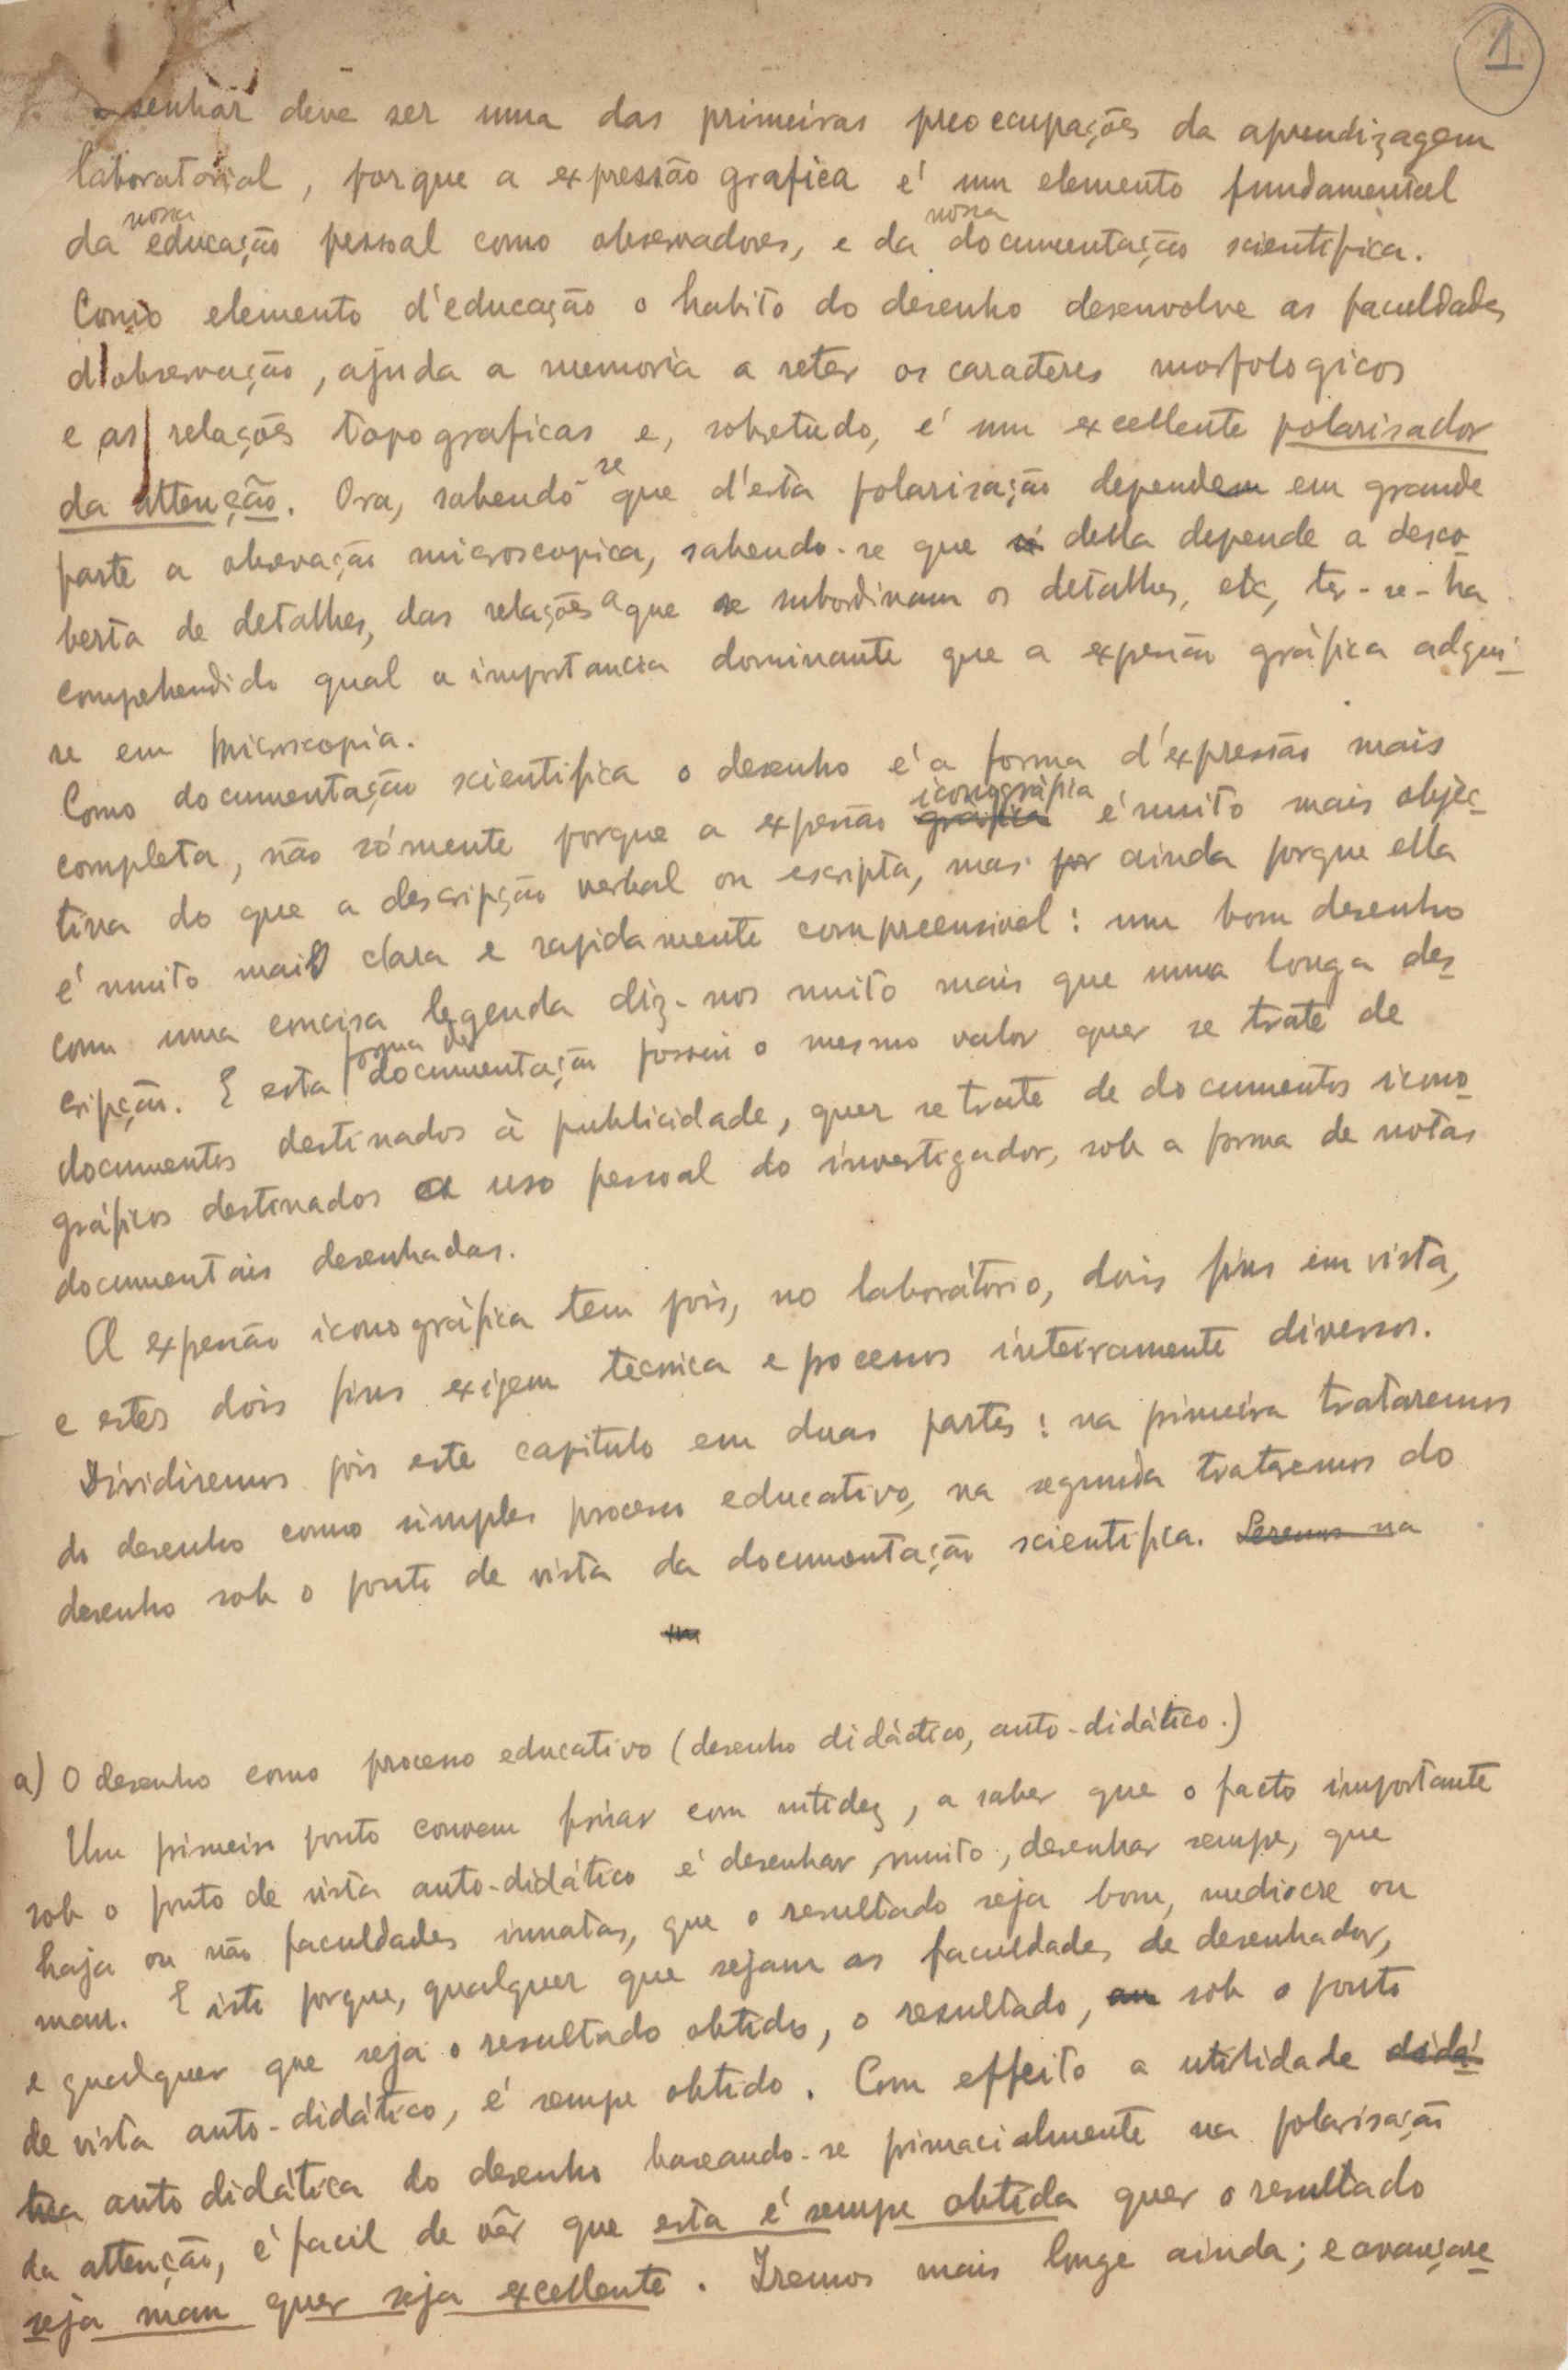 1
senhar deve ser uma das primeiras preoccupações da aprendizagem
laboratorial, porque a expressão grafica é um elemento fundamental
da nossa educação pessoal como observadores, e da nossa documentação scientifica.
Como elemento d'educação o habito do desenho desenvolve as faculdades
d'observação, ajuda a memoria a reter os caracteres morfologicos
e as relações topograficas e, sobretudo, é um excellente polarisador
da attenção. Ora, sabendo-se que d'esta polarisação depende em grande
parte a obsevação microscopica, sabendo-se que della depende a desco-
berta de detalhes, das relações a que se subordinam os detalhes, etc, ter-se-ha
compehendido qual a importancia dominante que a expesão gráfica adqui-
re em Microscopia.
Como documentação scientifica o desenho é a forma d'expressão mais
completa, não sómente porque a expesão gráfica iconográfica é muito mais objec-
tiva do que a descripção verbal ou escripta, mas por ainda porque ella
é muito mais clara e rapidamente compreensivel: um bom desenho
com uma concisa legenda diz-nos muito mais que uma longa des-
cripção. E esta forma de documentação possui o mesmo valor quer se trate de
documentos destinados à publicidade, quer se trate de documentos icono-
gráficos destinados a uso pessoal do investigador, sob a forma de notas
documentais desenhadas.
A expesão iconográfica tem pois, no laboratório, dois fins em vista,
e estes dois fins exigem técnica e pocessos inteiramente diversos.
Dividiremos pois este capitulo em duas partes: na primeira trataremos
do desenho como simples processo educativo, na segunda trataremos do
desenho sob o ponto de vista da documentação scientifica. Seremos na
a) O desenho como processo educativo (desenho didáctico, auto-didático.)
Um primeiro ponto convem frisar com nitidez, a saber que o facto importante
sob o ponto de vista auto-didático é desenhar muito, desenhar sempe, que
haja ou não faculdades innatas, que o resultado seja bom, mediocre ou
mau. E isto porque, qualquer que sejam as faculdades de desenhador,
e qualquer que seja o resultado obtido, o resultado, sob o ponto
de vista auto-didático, é sempe obtido. Com effeito a utilidade didá-
tica auto didática do desenho baseando-se primacialmente na polarisação
da attenção, é facil de vêr que esta é sempe obtida quer o resultado
seja mau quer seja excellente. Iremos mais longe ainda; e avançare-